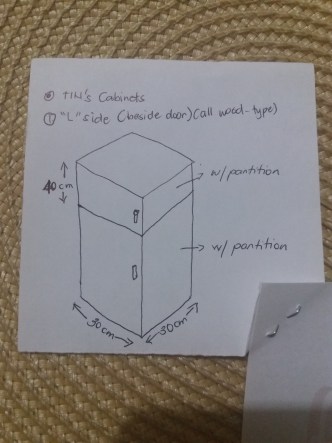 TIN's Cabinets
① "L" side (beside door) (all wood-type)
40 cm
w/ partition
w/ partition
30cm
30cm